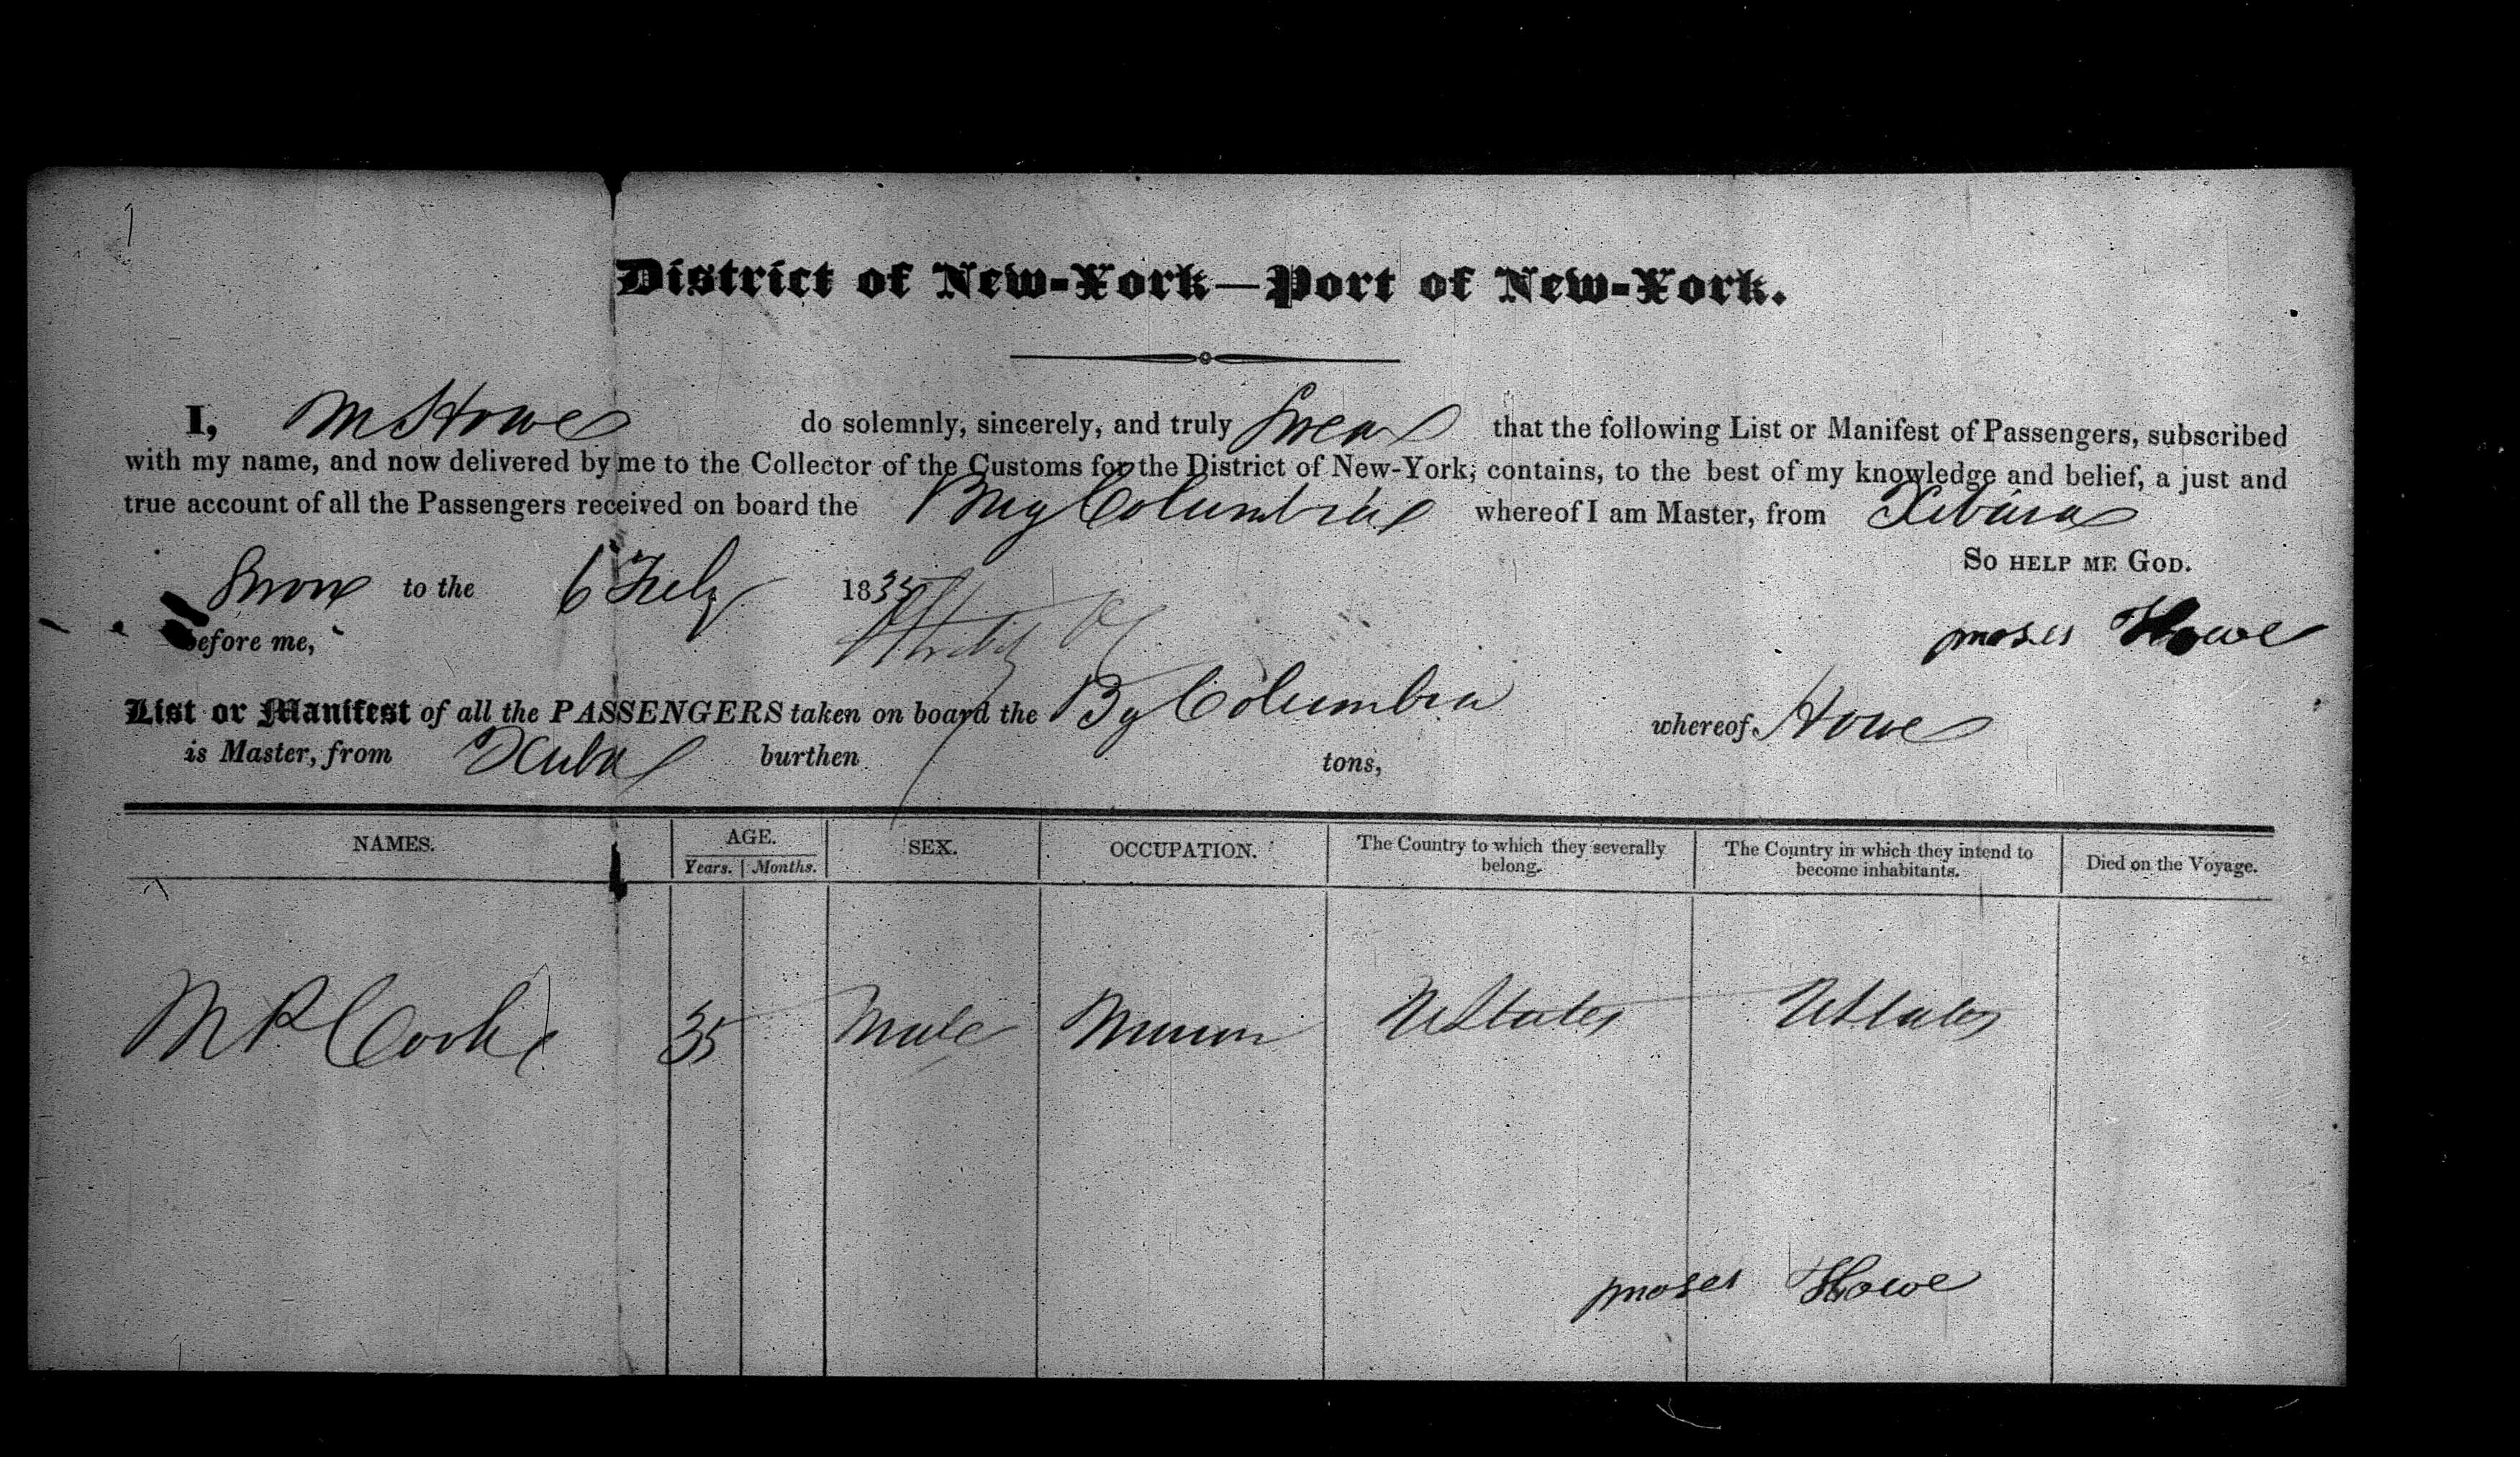 District of New-York—Port of New-York.
I, M Howe do solemnly, sincerely, and truly Swear that the following List or Manifest of Passengers, subscribed
with my name, and now delivered by me to the Collector of the Customs for the District of New-York, contains, to the best of my knowledge and belief, a just and
true account of all the Passengers received on board the Brig Columbia whereof I am Master, from Xibara
So help me God.
Sworn to the 6 July 1835
before me,
moses Howe
List or Manifest of all the PASSENGERS taken on board the Bg Columbia whereof Howe
is Master, from burthen tons,
NAMES. AGE. SEX. OCCUPATION. The Country to which they severally belong. The Country in which they intend to become inhabitants. Died on the Voyage.
Years. Months.
M R Cook 35 Male U States U States
moses Howe